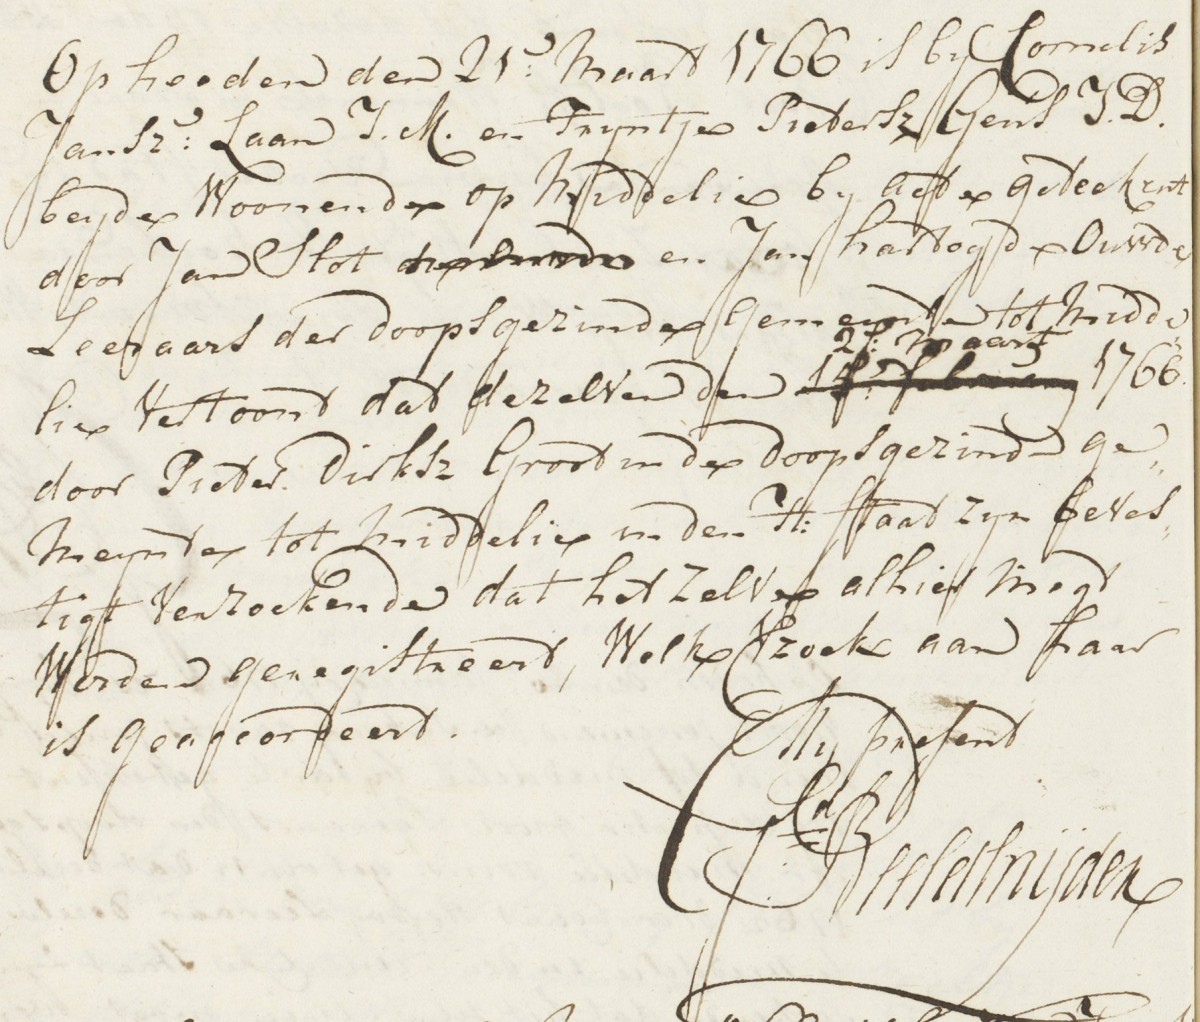 Op heeden den 21.e Maart 1766 is by Cornelis
Jansz: Laan J.M. en Tryntje Pietersz Gens J.D.
beyde Woonende op Middelie by acte geteekent
door Jan Slot en Jan hartog d'Oudde
Leeraars der doopsgezinde Gemeente tot Midde„
lie Vertoont dat dezelven den 21.e maart 1766.
door Pieter Dirksz Groot in de doopsgezinde ge„
meynte tot Middelie in den H: staat zyn beves„
tigt Verzoekende dat het zelve alhier mogt
Worden geregistreert, Welk Verzoek aan haar
is geaccordeert.
My present
Beeldsnijder